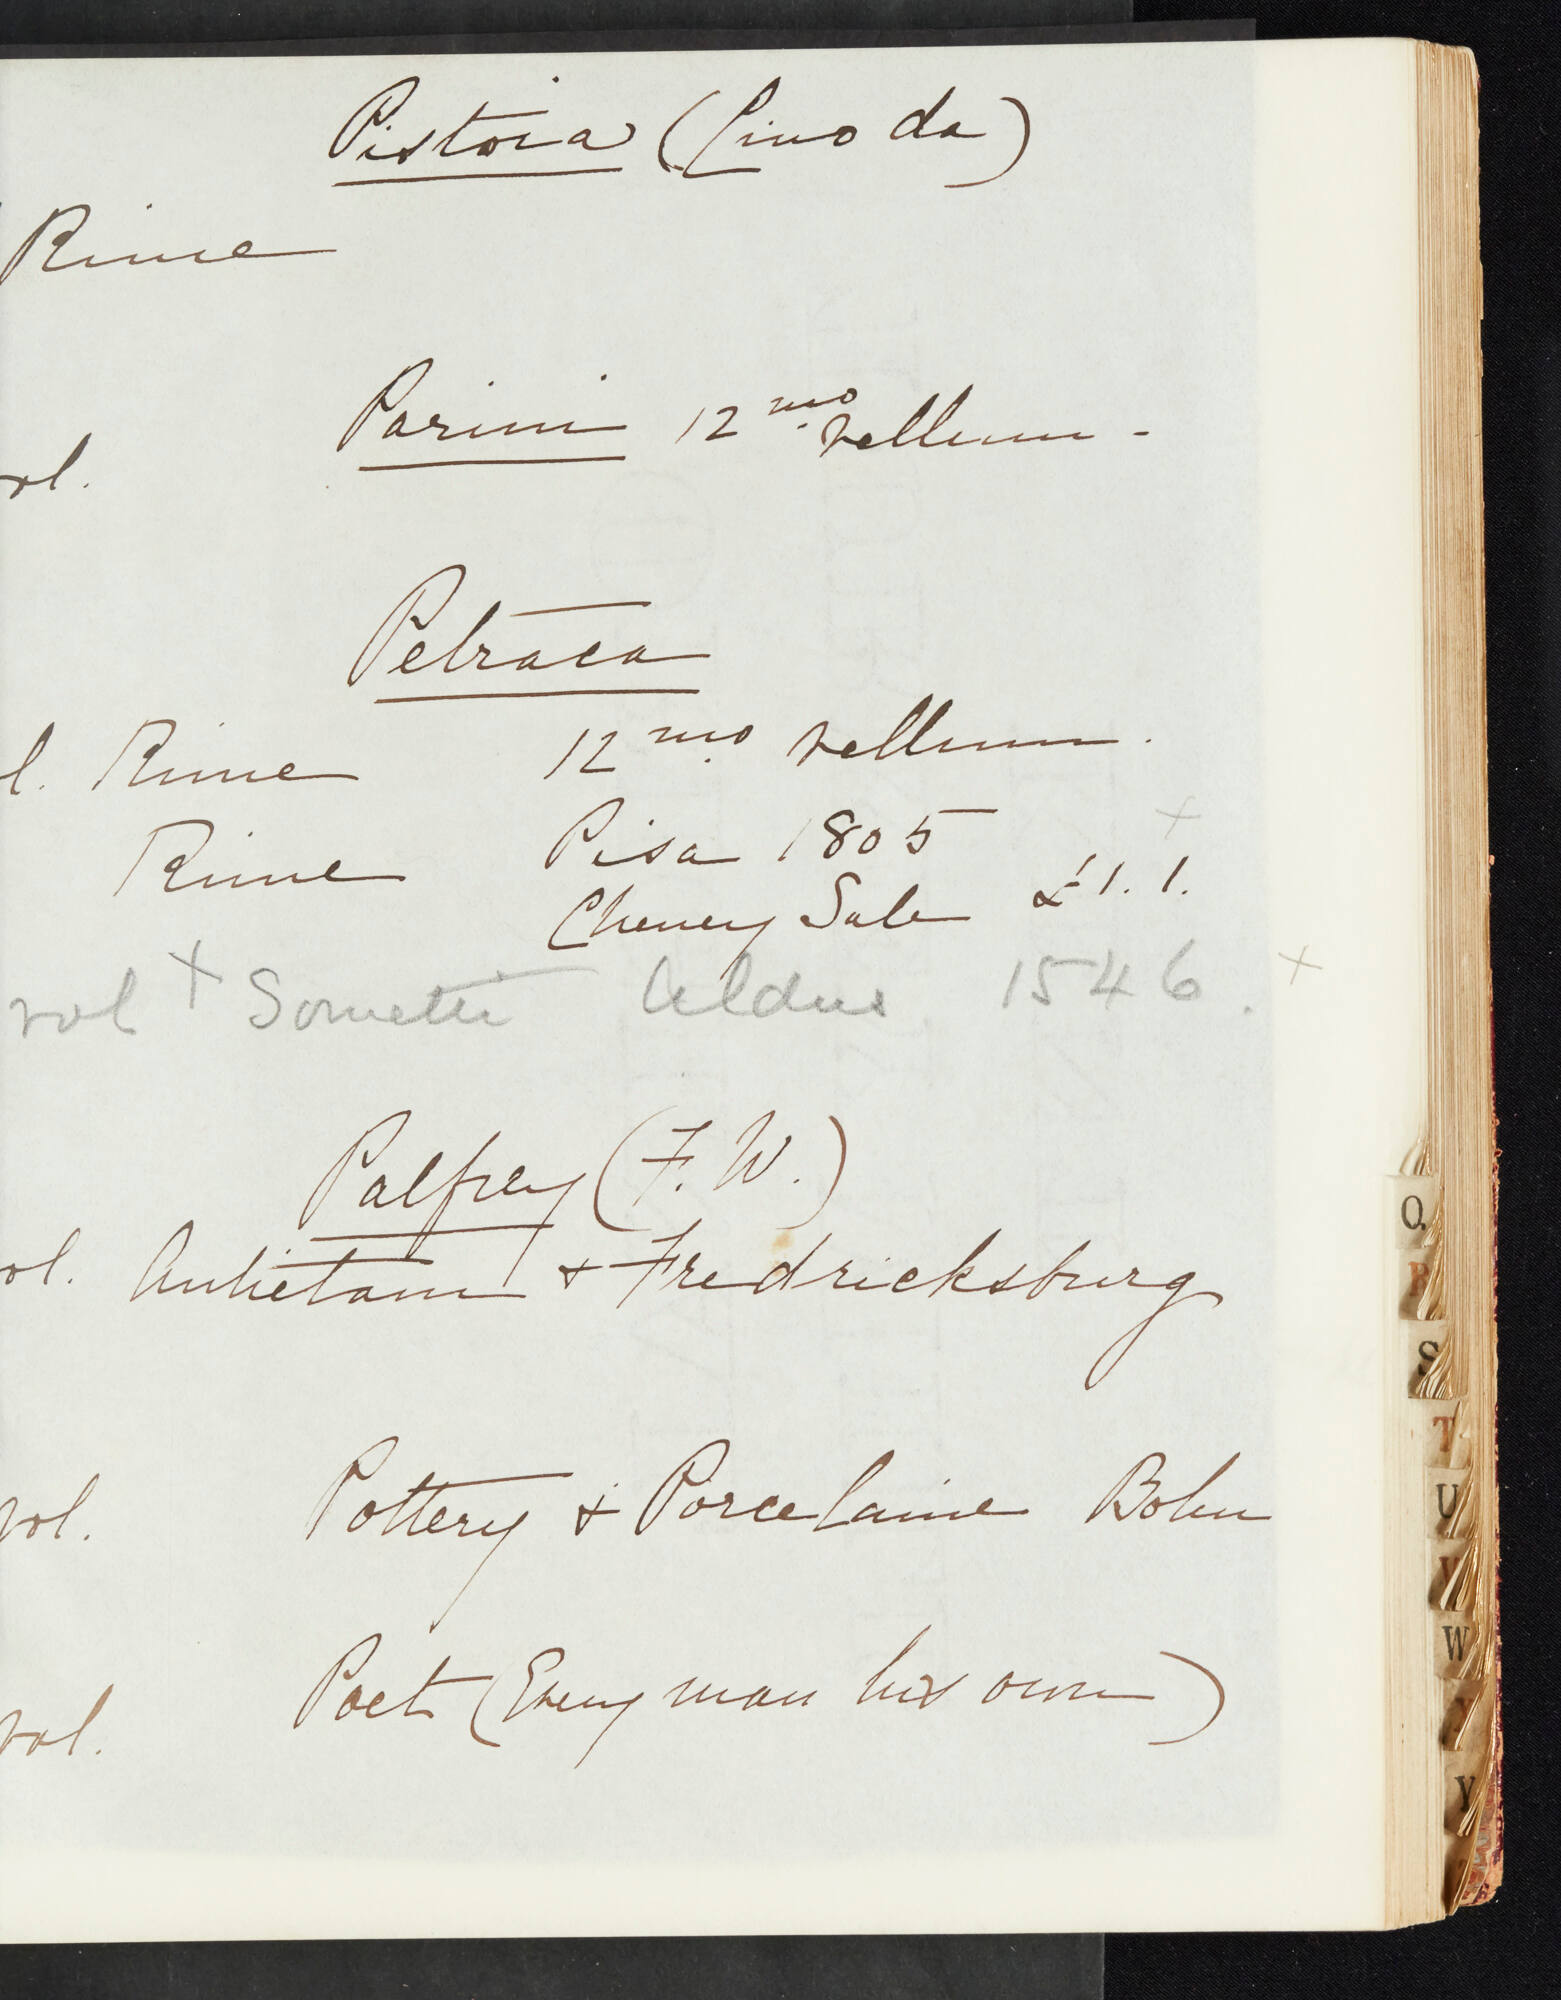 Pistoia (Cino da)
Rime
Parini 12mo. vellum -
vol.
Petraca
l. Rime 12mo. vellum.
Rime Pisa 1805
Cheney Sale £1.1.
vol + Sonetti Aldus 1546. +
Palfrey (F. W.)
ol. Antietam & Fredricksburg
vol. Pottery & Porcelaine Bohn
vol. Poet (Every man his own)
O.
R
S
T
U
V
W
X
Y